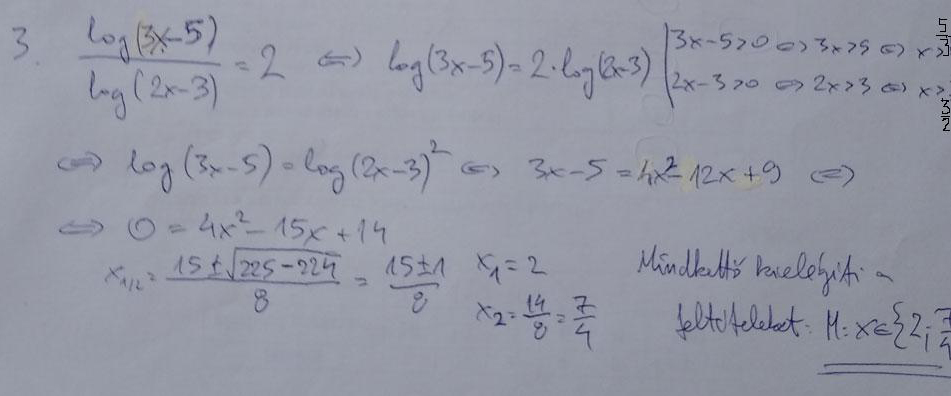 3. log(3x-5) / log(2x-3) = 2 ⇔ log(3x-5) = 2·log(2x-3) | 3x-5>0 ⇔ 3x>5 ⇔ x> 5/3
2x-3>0 ⇔ 2x>3 ⇔ x> 3/2
⇔ log(3x-5) = log(2x-3)² ⇔ 3x-5 = 4x²-12x+9 ⇔
⇔ 0 = 4x²-15x+14
x₁/₂ = (15±√(225-224))/8 = (15±1)/8 x₁=2
x₂ = 14/8 = 7/4
Mindkettő kielégíti a
feltételeket. M: x∈{2; 7/4